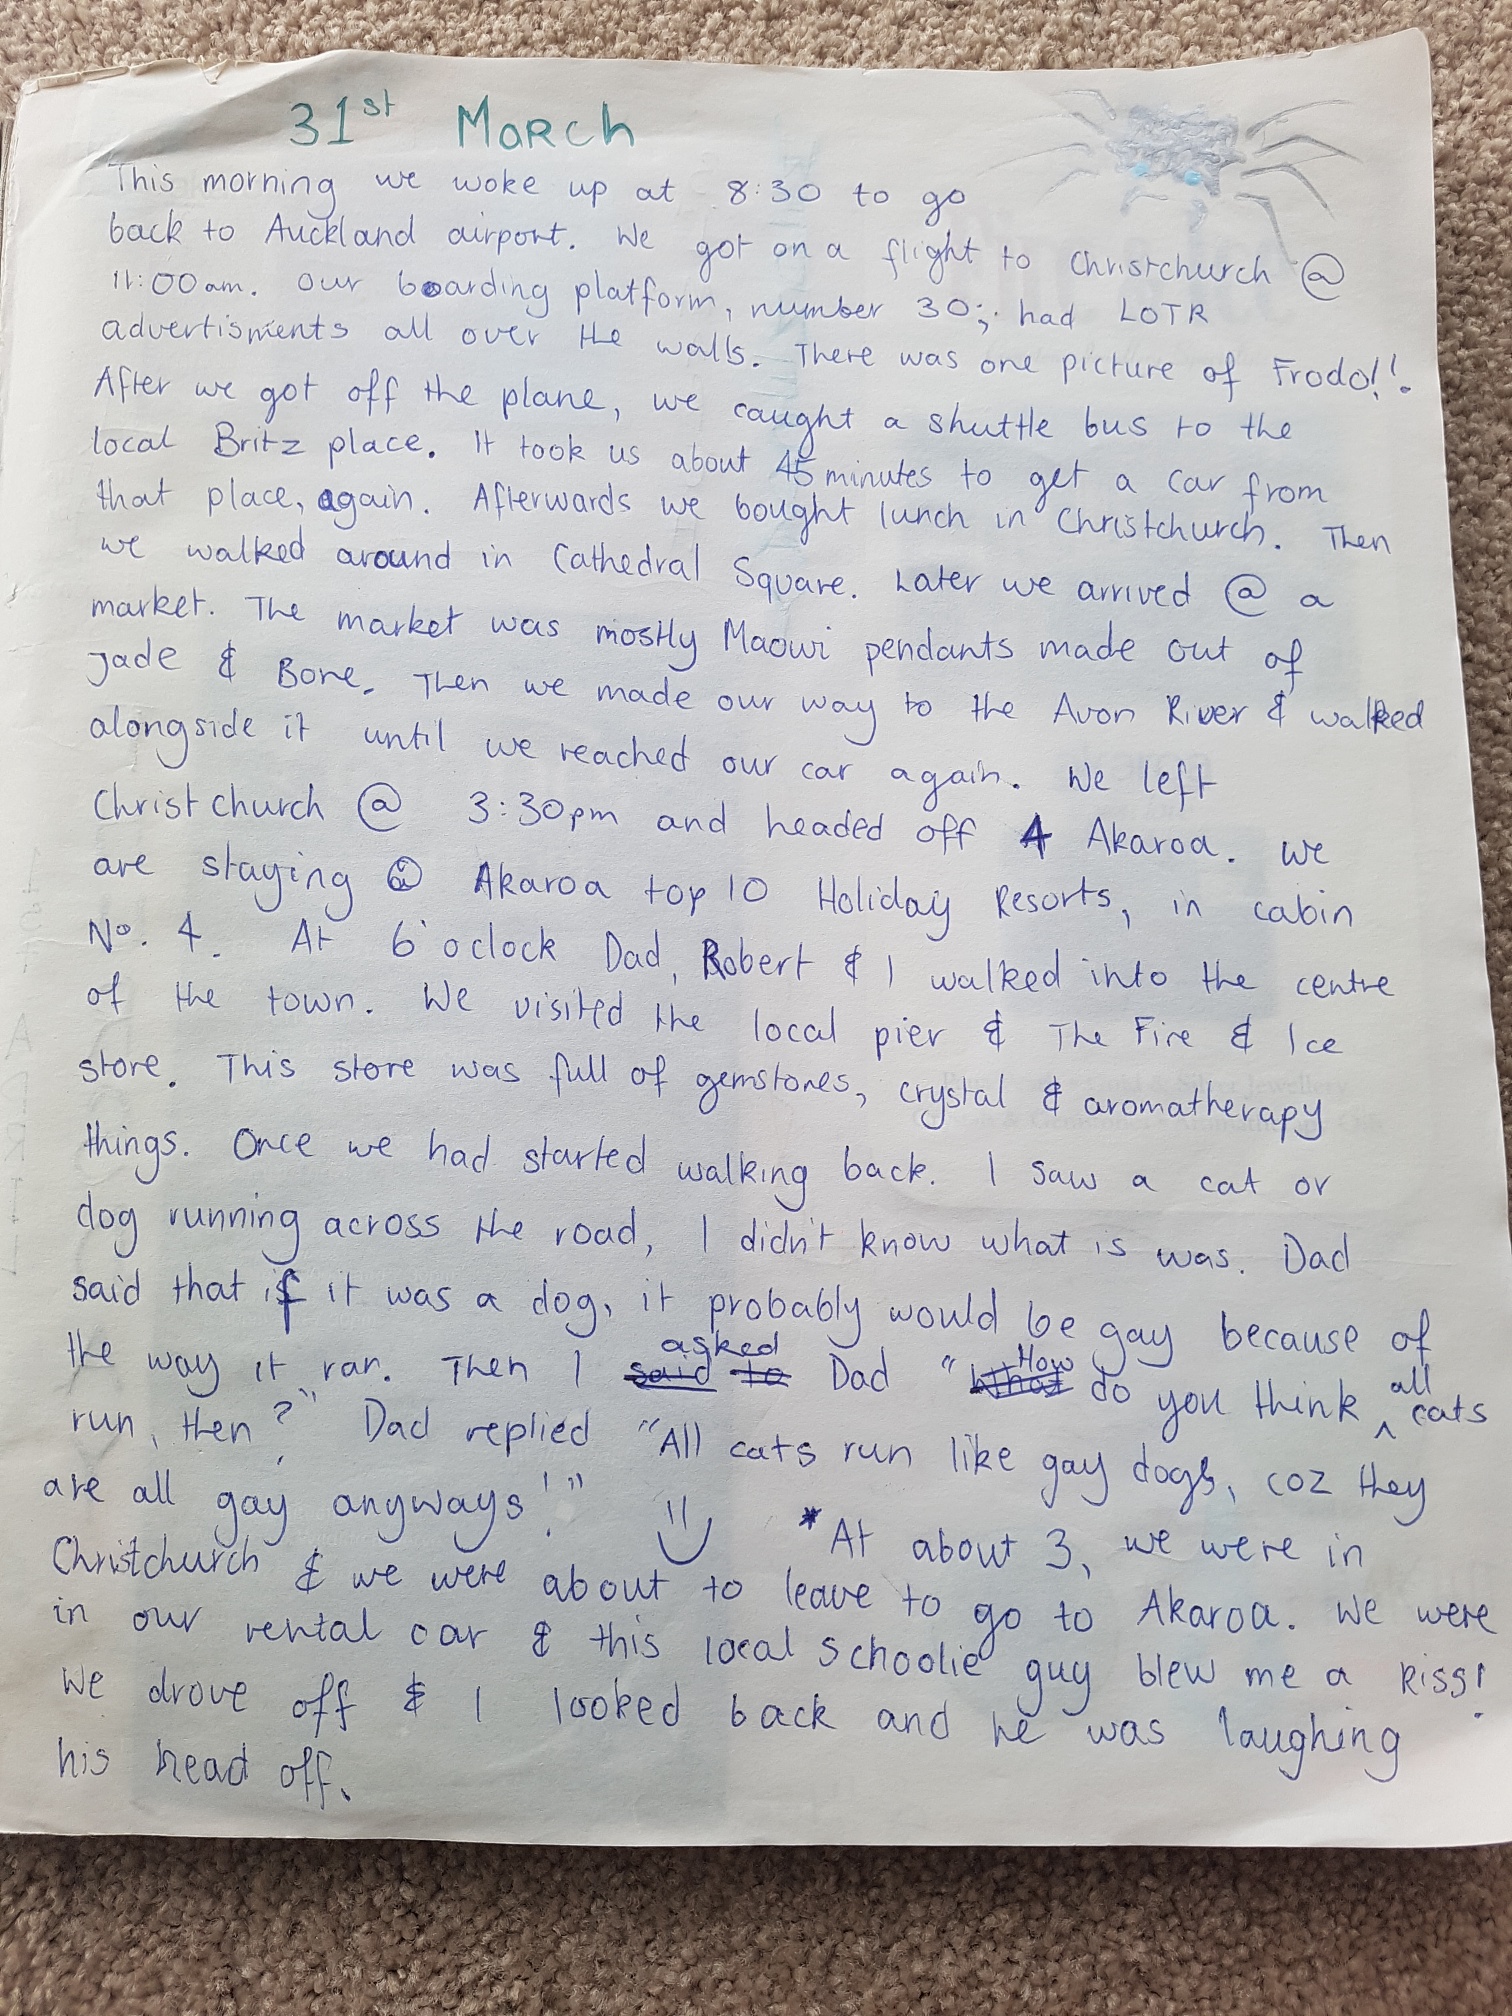 31st March
This morning we woke up at 8:30 to go
back to Auckland airport. We got on a flight to Christchurch @
11:00am. Our boarding platform, number 30; had LOTR
advertisments all over the walls. There was one picture of Frodo!!.
After we got off the plane, we caught a shuttle bus to the
local Britz place. It took us about 45 minutes to get a car from
that place, again. Afterwards we bought lunch in Christchurch. Then
we walked around in Cathedral Square. Later we arrived @ a
market. The market was mostly Maowi pendants made out of
jade & Bone. Then we made our way to the Avon River & walked
alongside it until we reached our car again. We left
Christchurch @ 3:30pm and headed off 4 Akaroa. We
are staying @ Akaroa top 10 Holiday Resorts, in cabin
No. 4. At 6'oclock Dad, Robert & I walked into the centre
of the town. We visited the local pier & The Fire & Ice
store. This store was full of gemstones, crystal & aromatherapy
things. Once we had started walking back. I saw a cat or
dog running across the road, I didn't know what is was. Dad
said that if it was a dog, it probably would be gay because of
the way it ran. Then I said to asked Dad "What How do you think all cats
run, then?" Dad replied "All cats run like gay dogs, coz they
are all gay anyways!"
*At about 3, we were in
Christchurch & we were about to leave to go to Akaroa. We were
in our rental car & this local schoolie guy blew me a kiss!
We drove off & I looked back and he was laughing
his head off.